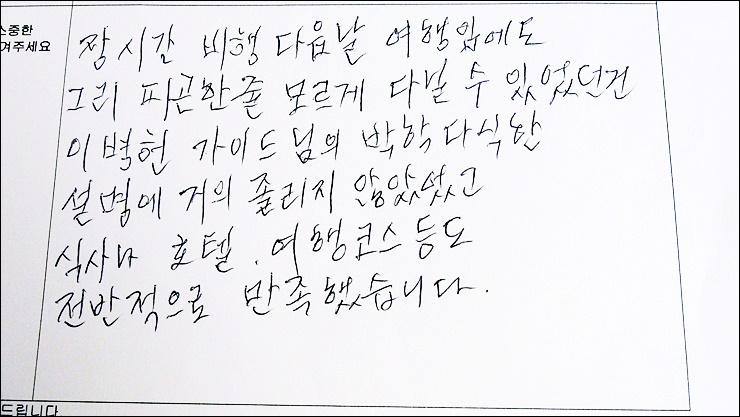 소중한
겨주세요
장시간 비행 다음날 여행임에도
그리 피곤한줄 모르게 다닐 수 있었던건
이병헌 가이드님의 박학다식한
설명에 거의 졸리지 않았었고
식사나 호텔, 여행코스등도
전반적으로 만족했습니다.
드립니다